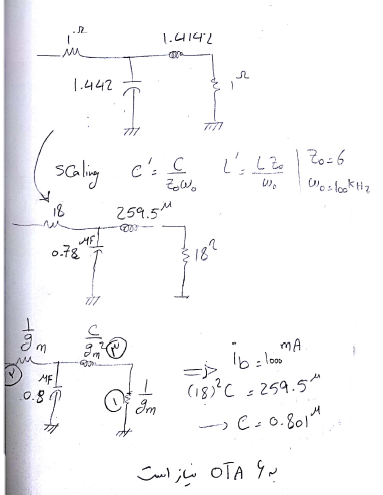 1Ω
1.4142
1.442
1Ω
Scaling C' = C / Z₀ω₀ L' = L Z₀ / ω₀ | Z₀ = 6
ω₀ = 100 kHz
18
259.5 μ
0.78 μF
18Ω
1/gm
C/gm² ③
۲
0.8 μF
① 1/gm
⇒ ib = 1000 mA
(18)² C = 259.5 μ
→ C = 0.801 μ
به ۶ OTA نیاز است